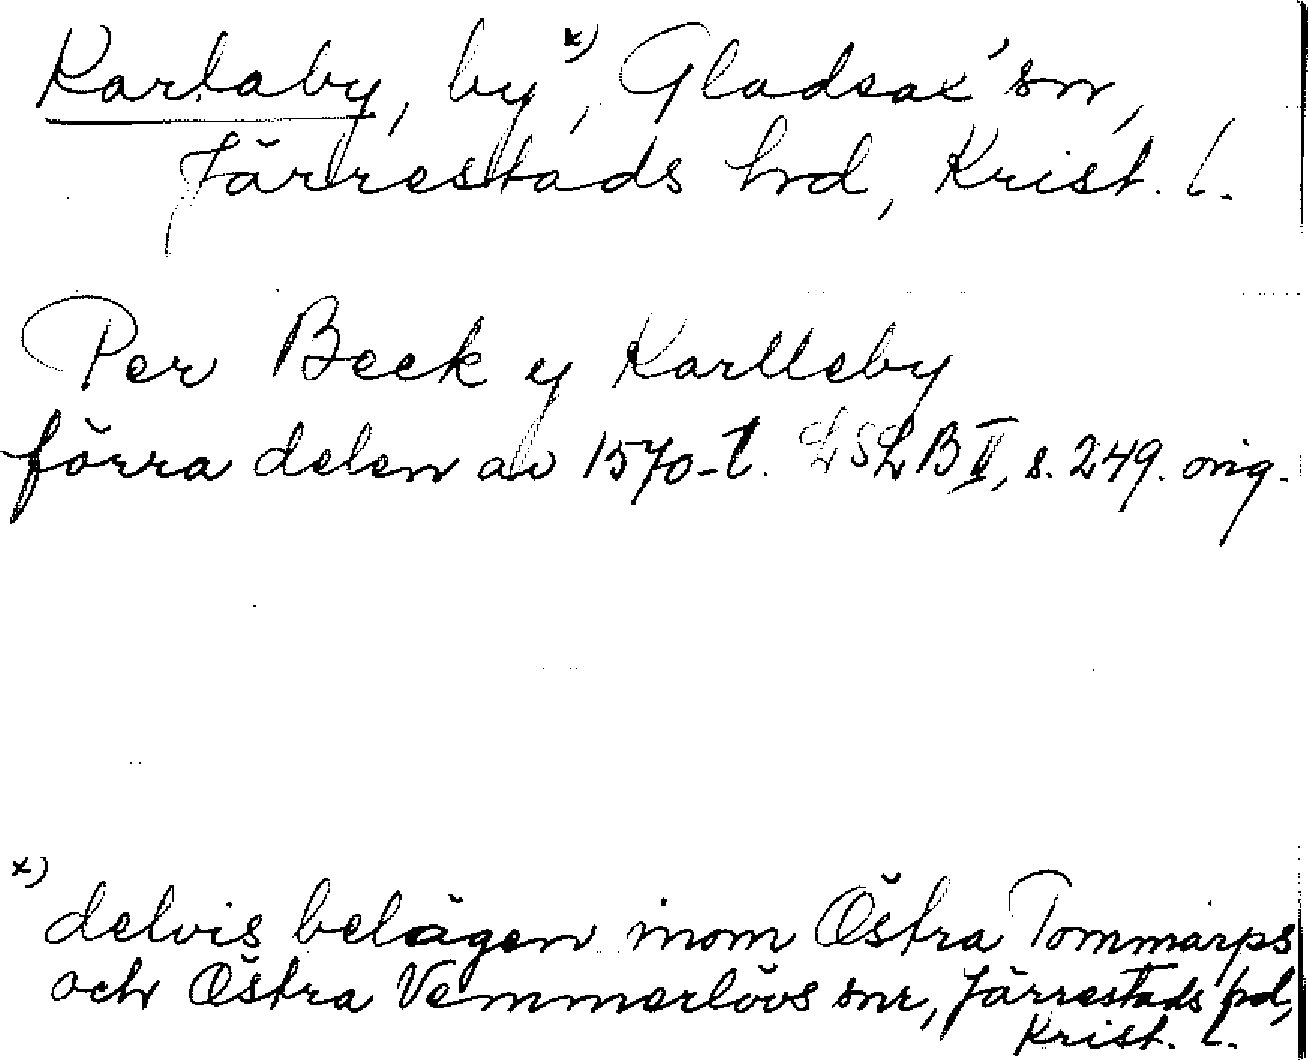 Karlaby, by x), Gladsax' sn,
Järrestads hrd, Krist. l.
Per Beck y Karlleby
förra delen av 1570-t. LSLB II, s. 249. orig.
x) delvis belägen inom Östra Tommarps
och Östra Vemmerlövs snr, Järrestads hd,
Krist. l.